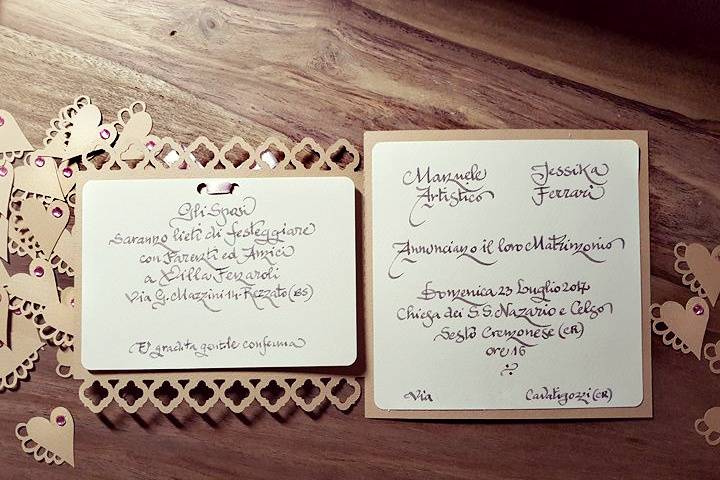 Gli Sposi
Saranno lieti di festeggiare
con Parenti ed Amici
a Villa Fenaroli
Via G. Mazzini 14 Rezzato (BS)
È gradita gentile conferma
Manuele Artistico
Jessika Ferrari
Annunciano il loro Matrimonio
Domenica 23 Luglio 2017
Chiesa dei S.S. Nazario e Celso
Sesto Cremonese (CR)
ore 16
Via
Cavatigozzi (CR)